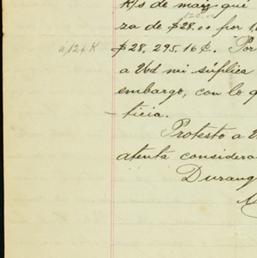 k/s de maiz que
za de $28.00 por 1
a/26 K
$28,295.16¢. Por
a Vd mi súplica
embargo, con lo q
ticia.
Protesto a V
atenta considera
Durang